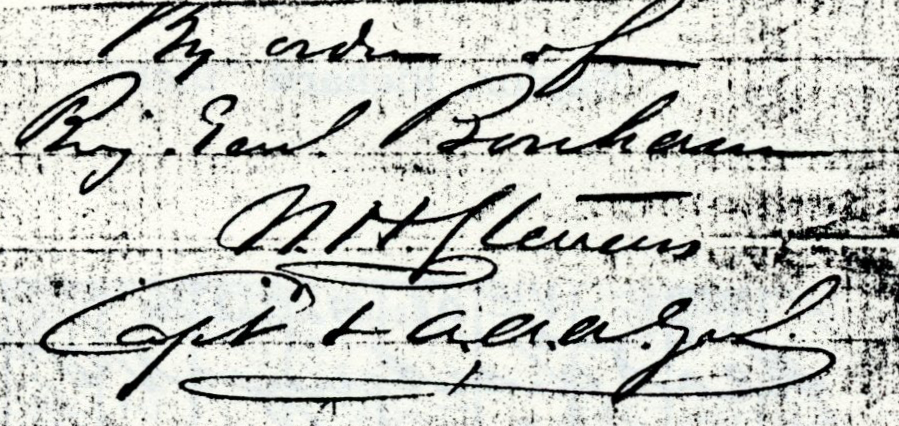 By order of
Brig. Genl. Bonham
W. H. Stevens
Capt & A.A.A. Genl.